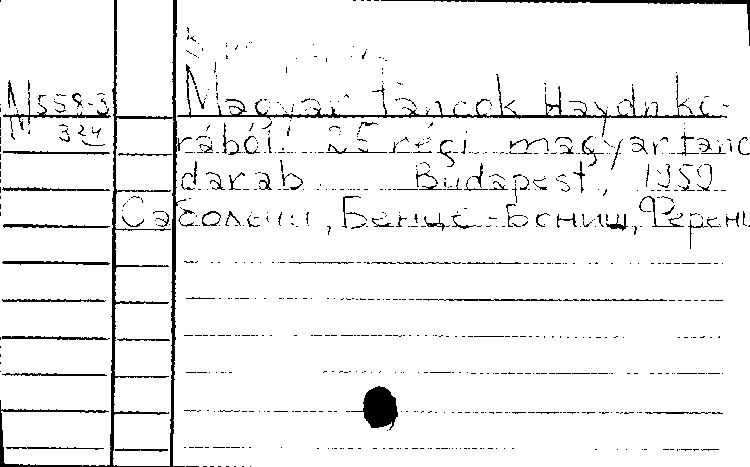 M 558-3
324
Magyar táncok Haydn ko-
rából. 25 régi magyar tánc
darab. Budapest, 1959
Сабольчи, Бенце - Бониш, Ференц